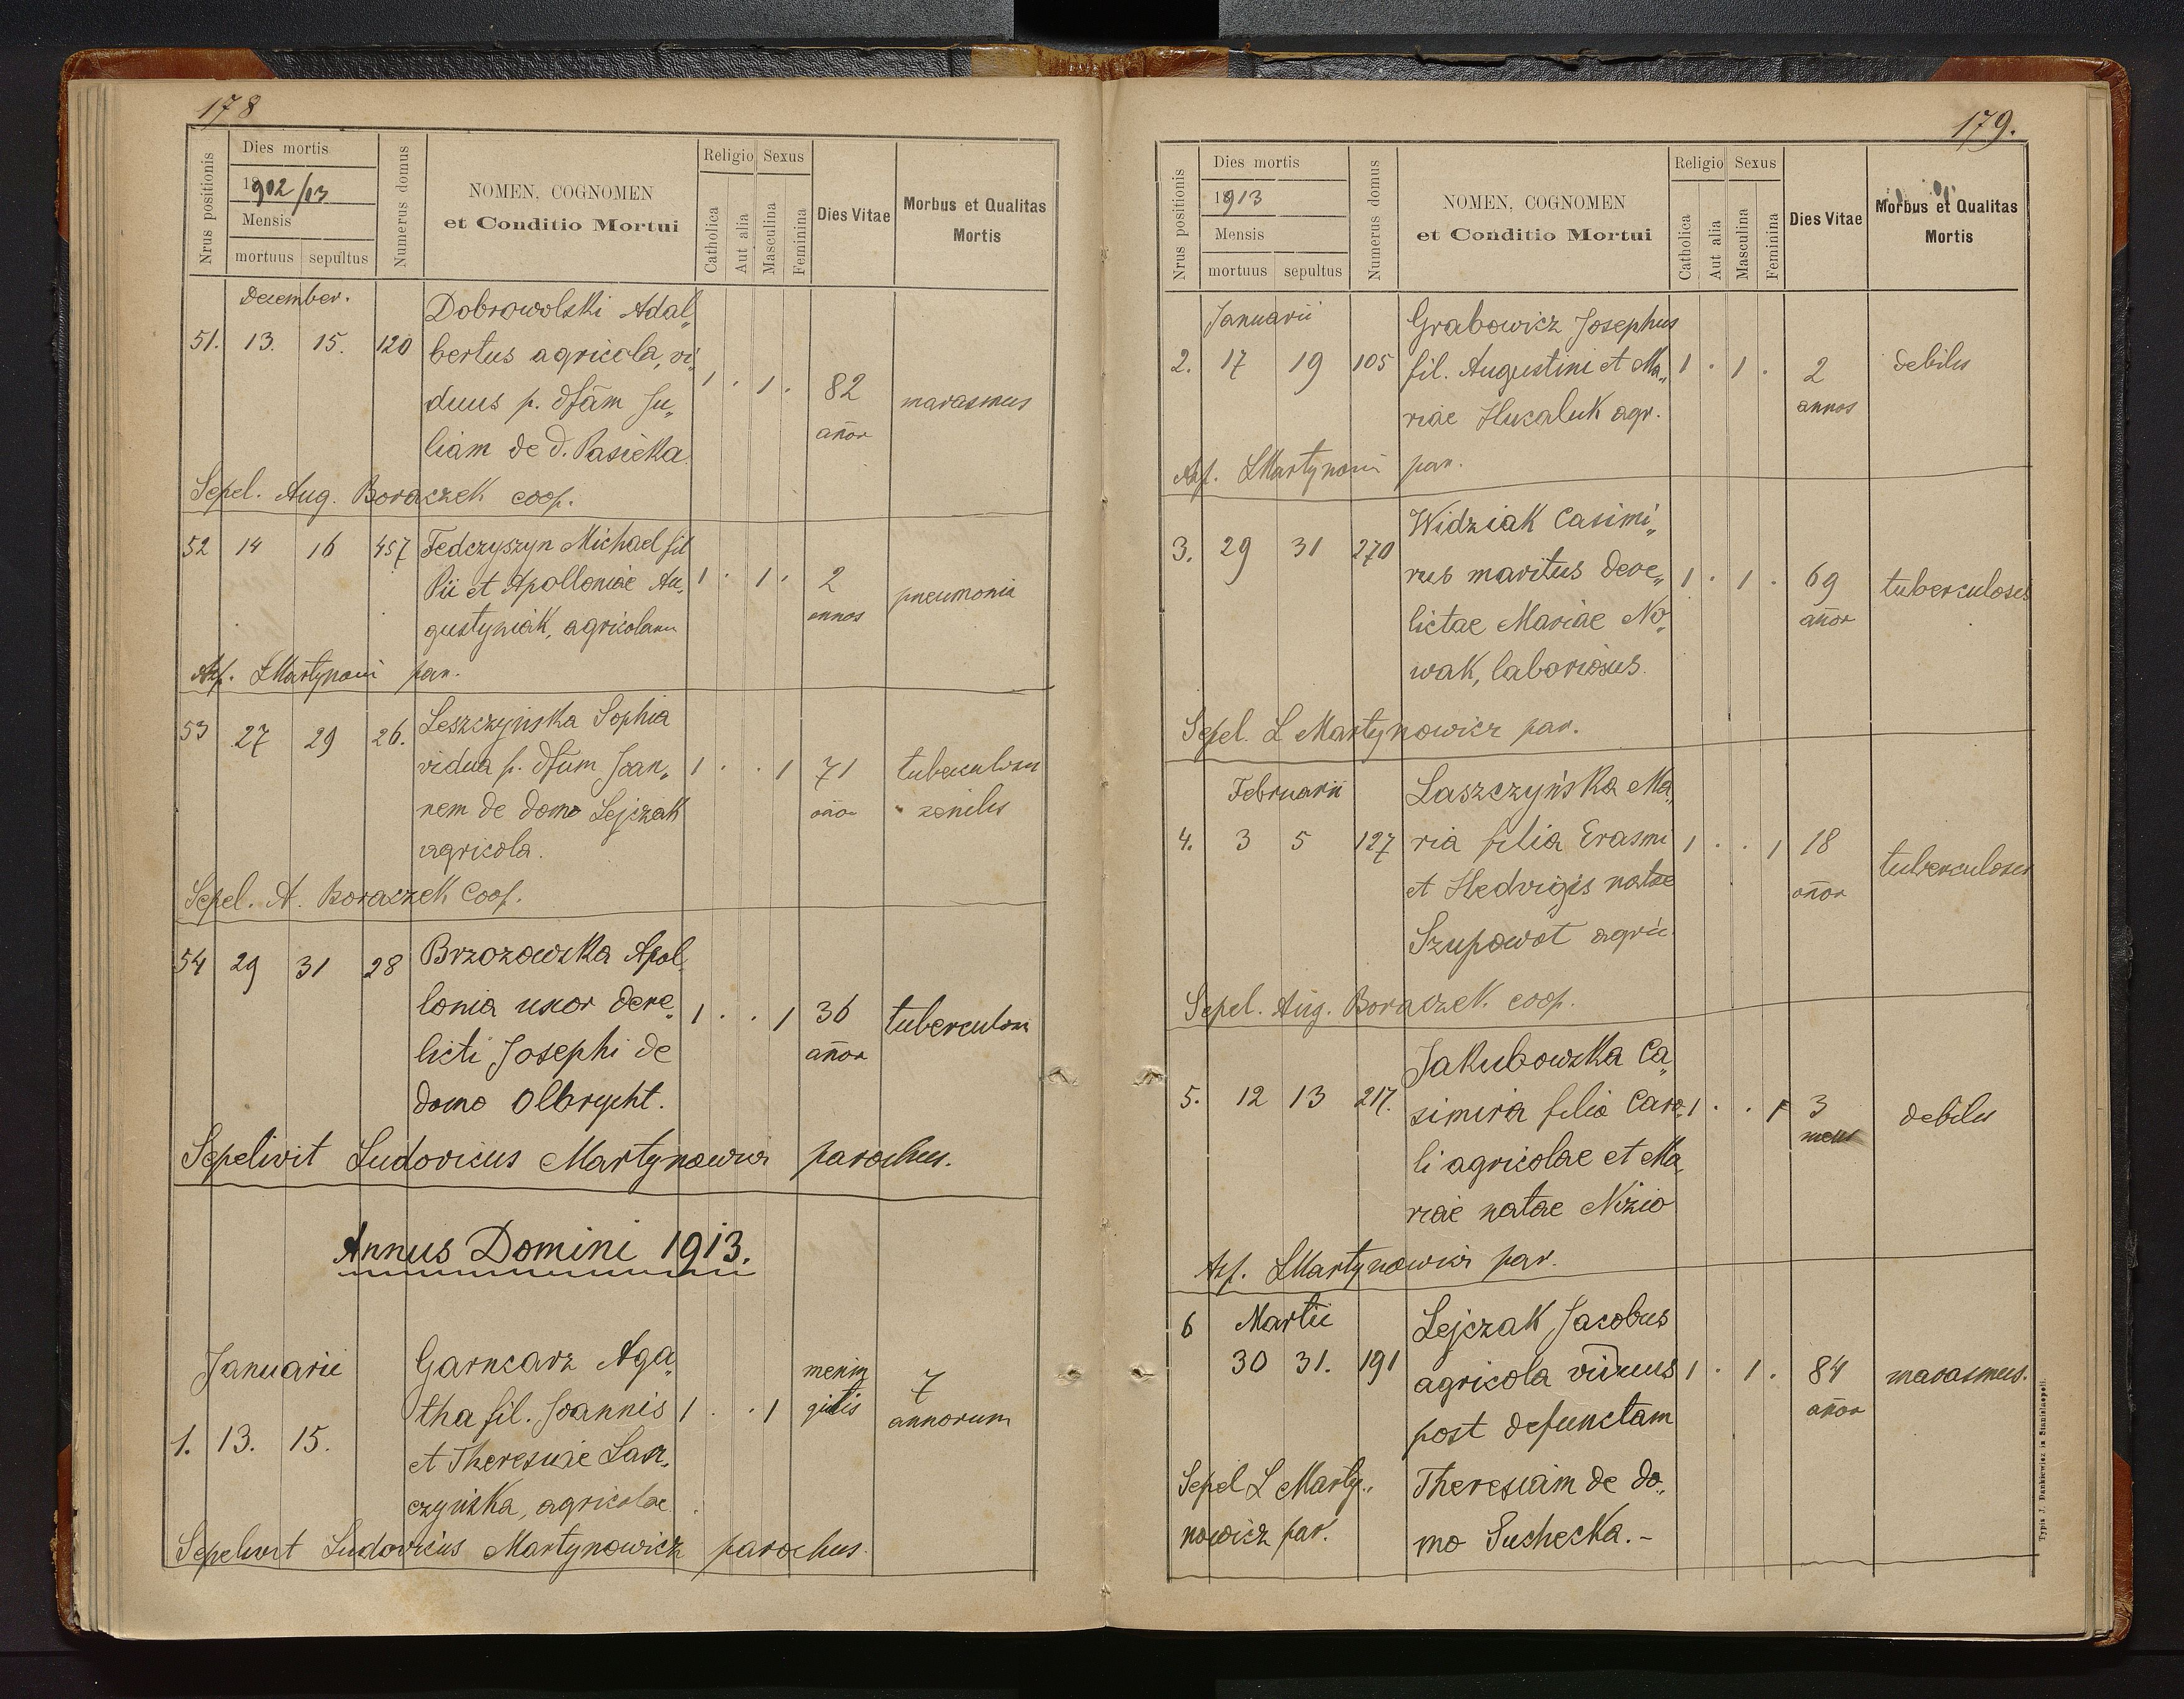 178
Nrus positionis
Dies mortis
1902/13
Mensis
mortuus sepultus
Numerus domus
NOMEN, COGNOMEN
et Conditio Mortui
Religio Sexus
Catholica
Aut alia
Masculina
Feminina
Dies Vitae
Morbus et Qualitas
Mortis
December.
Dobrowolski Adal„
51. 13. 15. 120 bertus agricola, vi„
duus p. dfām Ju„ 1 . 1 . 82 marasmus
liam de d. Pasieka. añor
Sepel. Aug. Boraczek coop.
52 14 16 457 Fedczyszyn Michael fil
Pii et Apolloniae Au„ 1 . 1 . 2 pneumonia
gustyniak, agricolarum annos
LMartynowi par.
53 27 29 26. Leszczyńska Sophia
vidua p. dfum Joan„ 1 . . 1 71
nem de domo Lejczak añor
agricola.
Sepel. A. Boraczek Coop.
54 29 31 28 Brzozowska Apol„
lonia uxor dere„ 1 . . 1 36
licti Josephi de añor
domo Olbrycht.
Sepelivit Ludovicus Martynowicz parochus.
Annus Domini 1913.
Januarii Garncarz Aga„ menin 7
tha fil. Joannis 1 . . 1 gitis annorum
1. 13. 15. et Theresiae Lasz„
czyńska, agricolae.
Sepelivit Ludovicus Martynowicz parochus.
179.
Nrus positionis
Dies mortis
1913
Mensis
mortuus sepultus
Numerus domus
NOMEN, COGNOMEN
et Conditio Mortui
Religio Sexus
Catholica
Aut alia
Masculina
Feminina
Dies Vitae
Morbus et Qualitas
Mortis
Januarii Grabowicz Josephus
2. 17 19 105 fil. Augustini et Ma„ 1 . 1 . 2 debilis
riae Hucaluk agr. annos
LMartynowi par.
Widziak Casimi„
3. 29 31 270 rus maritus dere„ 1 . 1 . 69 tuberculosis
lictae Mariae No„ añor
wak, laboriosus.
Sepel. L Martynowicz par.
Februarii Laszczyńska Ma„
4. 3 5 127 ria filia Erasmi 1 . . 1 18 tuberculosis
et Hedvigis natae añor
Szupowot agric.
Sepel. Aug. Boraczek coop.
Jakubowska Ca„
5. 12 13 217. simira filia Caro„ 1 . . 1 3 debilis
li agricolae et Ma„ mens
riae natae Nizio
LMartynowicz par.
6 Martii Lejczak Jacobus
30 31. 191 agricola viduus 1 . 1 . 84 marasmus.
post defunctam añor
Sepel L Marty„ Theresiam de do„
nowicz par. mo Suchecka.-
Typis J. Dankiewicz in Stanislaopoli.